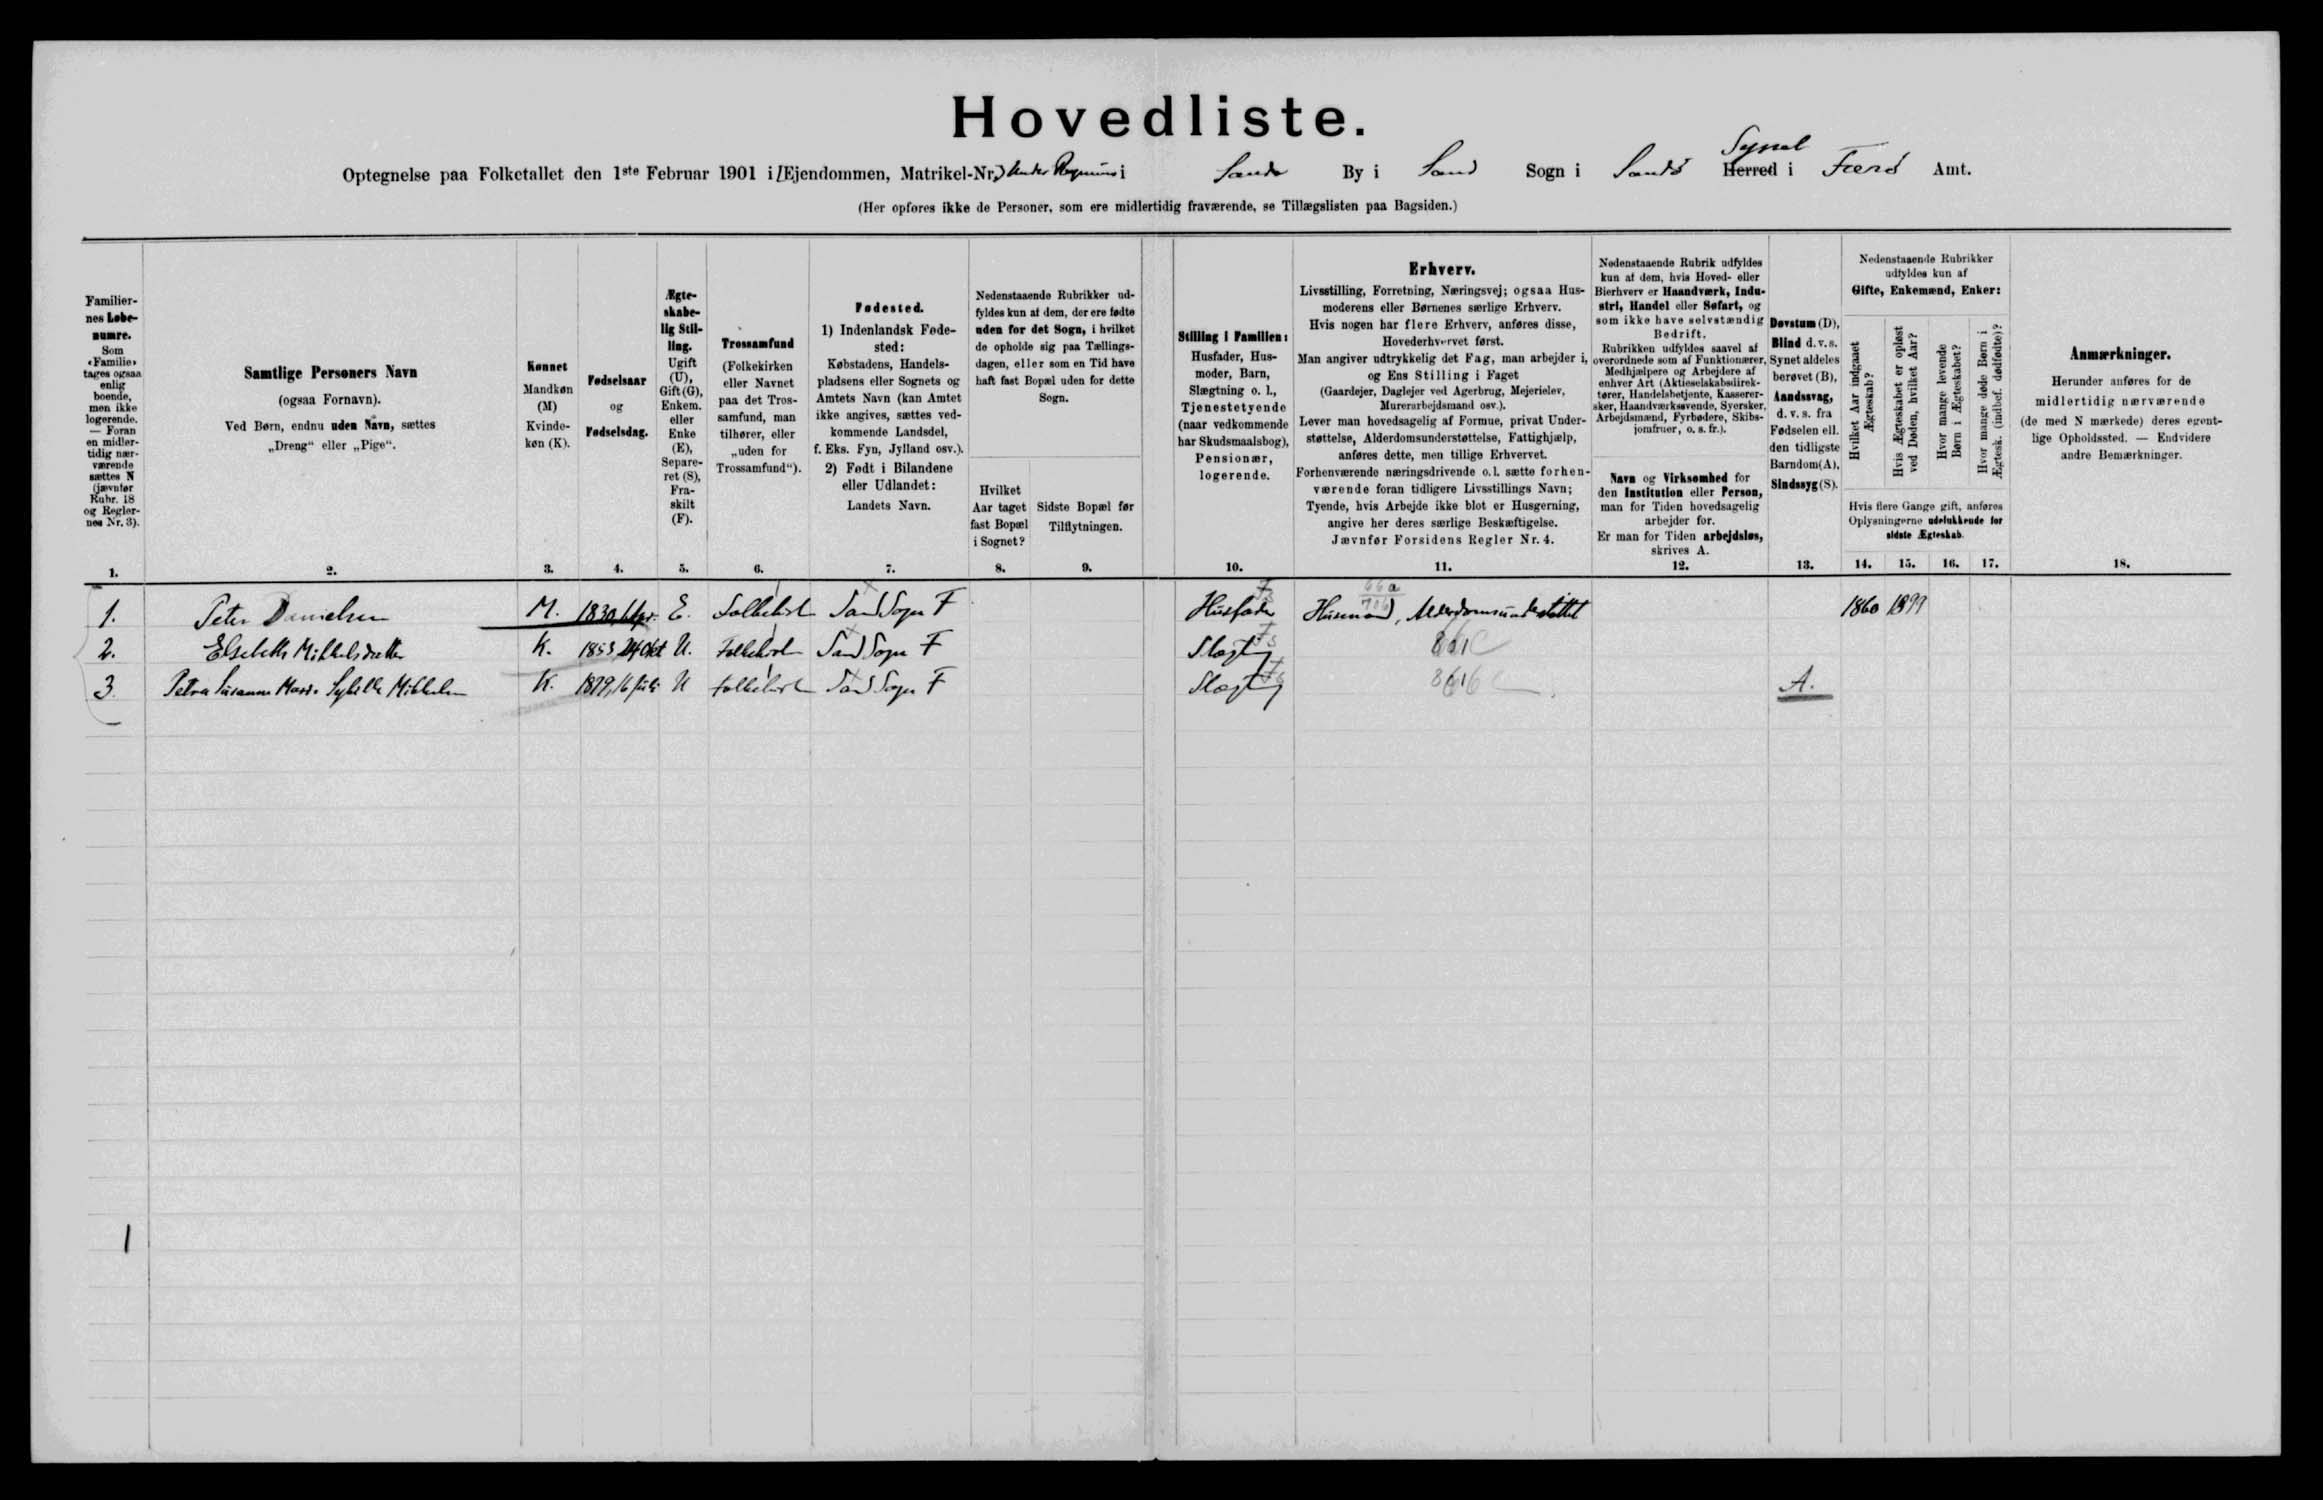 Hovedliste.
Optegnelse paa Folketallet den 1ste Februar 1901 i [Ejendommen, Matrikel-Nr.] Under i Sands By i Sand Sogn i Sandø Syssel Herred i Færø Amt.
(Her opføres ikke de Personer, som ere midlertidig fraværende, se Tillægslisten paa Bagsiden.)
Familier-
nes Løbe-
numre.
Som
«Familie»
tages ogsaa
enlig
boende,
men ikke
logerende.
— Foran
en midler-
tidig nær-
værende
sættes N
(jævnfør
Rubr. 18
og Regler-
nes Nr. 3).
1.
Samtlige Personers Navn
(ogsaa Fornavn).
Ved Børn, endnu uden Navn, sættes
„Dreng“ eller „Pige“.
2.
Kønnet
Mandkøn
(M)
Kvinde-
køn (K).
3.
Fødselsaar
og
Fødselsdag.
4.
Ægte-
skabe-
lig Stil-
ling.
Ugift
(U),
Gift (G),
Enkem.
eller
Enke
(E),
Separe-
ret (S),
Fra-
skilt
(F).
5.
Trossamfund
(Folkekirken
eller Navnet
paa det Tros-
samfund, man
tilhører, eller
„uden for
Trossamfund“).
6.
Fødested.
1) Indenlandsk Føde-
sted:
Købstadens, Handels-
pladsens eller Sognets og
Amtets Navn (kan Amtet
ikke angives, sættes ved-
kommende Landsdel,
f. Eks. Fyn, Jylland osv.).
2) Født i Bilandene
eller Udlandet:
Landets Navn.
7.
Nedenstaaende Rubrikker ud-
fyldes kun af dem, der ere fødte
uden for det Sogn, i hvilket
de opholde sig paa Tællings-
dagen, eller som en Tid have
haft fast Bopæl uden for dette
Sogn.
Hvilket
Aar taget
fast Bopæl
i Sognet?
8.
Sidste Bopæl før
Tilflytningen.
9.
Stilling i Familien:
Husfader, Hus-
moder, Barn,
Slægtning o. l.,
Tjenestetyende
(naar vedkommende
har Skudsmaalsbog),
Pensionær,
logerende.
10.
Erhverv.
Livsstilling, Forretning, Næringsvej; ogsaa Hus-
moderens eller Børnenes særlige Erhverv.
Hvis nogen har flere Erhverv, anføres disse,
Hovederhvervet først.
Man angiver udtrykkelig det Fag, man arbejder i,
og Ens Stilling i Faget
(Gaardejer, Daglejer ved Agerbrug, Mejerielev,
Murerarbejdsmand osv.).
Lever man hovedsagelig af Formue, privat Under-
støttelse, Alderdomsunderstøttelse, Fattighjælp,
anføres dette, men tillige Erhvervet.
Forhenværende næringsdrivende o. l. sætte forhen-
værende foran tidligere Livsstillings Navn;
Tyende, hvis Arbejde ikke blot er Husgerning,
angive her deres særlige Beskæftigelse.
Jævnfør Forsidens Regler Nr. 4.
11.
Nedenstaaende Rubrik udfyldes
kun af dem, hvis Hoved- eller
Bierhverv er Haandværk, Indu-
stri, Handel eller Søfart, og
som ikke have selvstændig
Bedrift.
Rubrikken udfyldes saavel af
overordnede som af Funktionærer,
Medhjælpere og Arbejdere af
enhver Art (Aktieselskabsdirek-
tører, Handelsbetjente, Kasserer-
sker, Haandværkssvende, Syersker,
Arbejdsmænd, Fyrbødere, Skibs-
jomfruer, o. s. fr.).
Navn og Virksomhed for
den Institution eller Person,
man for Tiden hovedsagelig
arbejder for.
Er man for Tiden arbejdsløs,
skrives A.
12.
Døvstum (D),
Blind d. v. s.
Synet aldeles
berøvet (B),
Aandssvag,
d. v. s. fra
Fødselen ell.
den tidligste
Barndom (A),
Sindssyg (S).
13.
Nedenstaaende Rubrikker
udfyldes kun af
Gifte, Enkemænd, Enker:
Hvilket Aar indgaaet
Ægteskab?
Hvis Ægteskabet er opløst
ved Døden, hvilket Aar?
Hvor mange levende
Børn i Ægteskabet?
Hvor mange døde Børn i
Ægtesk. (indbef. dødfødte)?
Hvis flere Gange gift, anføres
Oplysningerne udelukkende for
sidste Ægteskab.
14. 15. 16. 17.
Anmærkninger.
Herunder anføres for de
midlertidig nærværende
(de med N mærkede) deres egent-
lige Opholdssted. — Endvidere
andre Bemærkninger.
18.
1. Peter Danielsen M. 1830, E. Folkekirk Sand Sogn F Husfader Husmand, Alderdomsunderstøttet 1860 1899
2. Elsebeth Mikkelsdatter K. 1853, 24 Okt U. Folkekirk Sand Sogn F Slægtng
3. Petra Susanne Sybille Mikkelsen K. 1879, 16 Juli U Folkekirk Sand Sogn F Slægtng A.
1